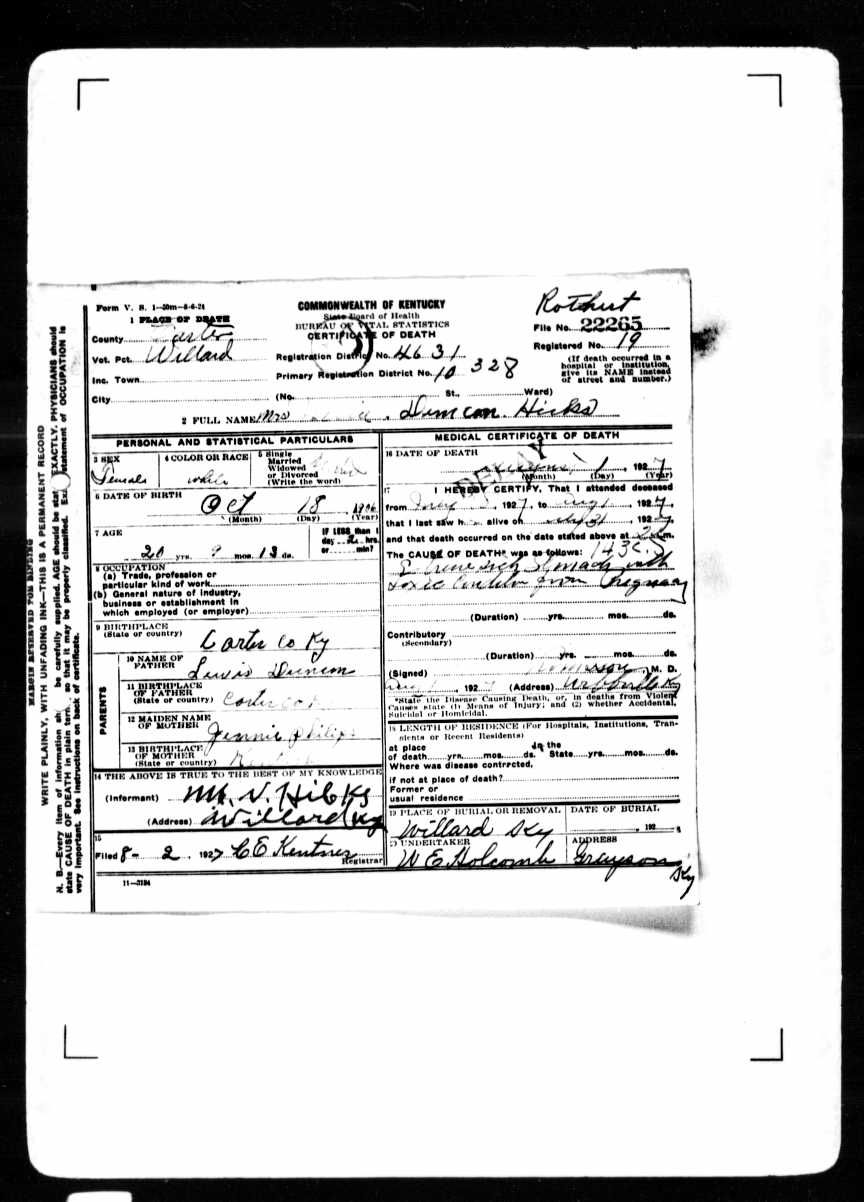 Form V. S. 1—50m—8-6-24
COMMONWEALTH OF KENTUCKY
State Board of Health
BUREAU OF VITAL STATISTICS
CERTIFICATE OF DEATH
Rothert
File No. 22265
Registered No. 19
(If death occurred in a hospital or institution, give its NAME instead of street and number.)
1 PLACE OF DEATH
County Carter
Vot. Pct. Willard
Inc. Town
City
Registration District No. 4631
Primary Registration District No. 10 328
(No. St., Ward)
2 FULL NAME Mrs Duncan Hicks
PERSONAL AND STATISTICAL PARTICULARS
3 SEX
Female
4 COLOR OR RACE
white
5 Single
Married
Widowed
or Divorced
(Write the word)
6 DATE OF BIRTH
Oct 18 1906
(Month) (Day) (Year)
7 AGE
20 yrs. 9 mos. 13 ds.
IF LESS than 1
day hrs.
or min?
8 OCCUPATION
(a) Trade, profession or
particular kind of work
(b) General nature of industry,
business or establishment in
which employed (or employer)
9 BIRTHPLACE
(State or country)
Carter Co Ky
PARENTS
10 NAME OF
FATHER
Lewis Duncan
11 BIRTHPLACE
OF FATHER
(State or country)
Carter Co
12 MAIDEN NAME
OF MOTHER
Jennie Philips
13 BIRTHPLACE
OF MOTHER
(State or country)
14 THE ABOVE IS TRUE TO THE BEST OF MY KNOWLEDGE
(Informant) Mr. V. Hicks
(Address) Willard Ky
15
Filed 8-2 1927 C E Kentner
Registrar
11—3184
MEDICAL CERTIFICATE OF DEATH
16 DATE OF DEATH
1, 1927
(Month) (Day) (Year)
DELAY
17
I HEREBY CERTIFY, That I attended deceased
from 1927, to Aug 1 1927,
that I last saw h alive on July 31 1927
and that death occurred on the date stated above at 2 m.
The CAUSE OF DEATH* was as follows:
143c
Sick Stomach with
toxic from Pregnancy
(Duration) yrs. mos. ds.
Contributory
(Secondary)
(Duration) yrs. mos. ds.
(Signed) M. D.
, 192 (Address)
*State the Disease Causing Death, or, in deaths from Violent Causes state (1) Means of Injury; and (2) whether Accidental, Suicidal or Homicidal.
18 LENGTH OF RESIDENCE (For Hospitals, Institutions, Transients or Recent Residents)
at place
of death yrs. mos. ds.
In the
State yrs. mos. ds.
Where was disease contrcted,
if not at place of death?
Former or
usual residence
19 PLACE OF BURIAL OR REMOVAL
Willard Ky
DATE OF BURIAL
, 192
20 UNDERTAKER
W E Holcomb
ADDRESS
Grayson Ky
MARGIN RESERVED FOR BINDING
WRITE PLAINLY, WITH UNFADING INK—THIS IS A PERMANENT RECORD
N. B.—Every item of information should be carefully supplied. AGE should be stated EXACTLY. PHYSICIANS should
state CAUSE OF DEATH in plain terms, so that it may be properly classified. Exact statement of OCCUPATION is
very important. See instructions on back of certificate.